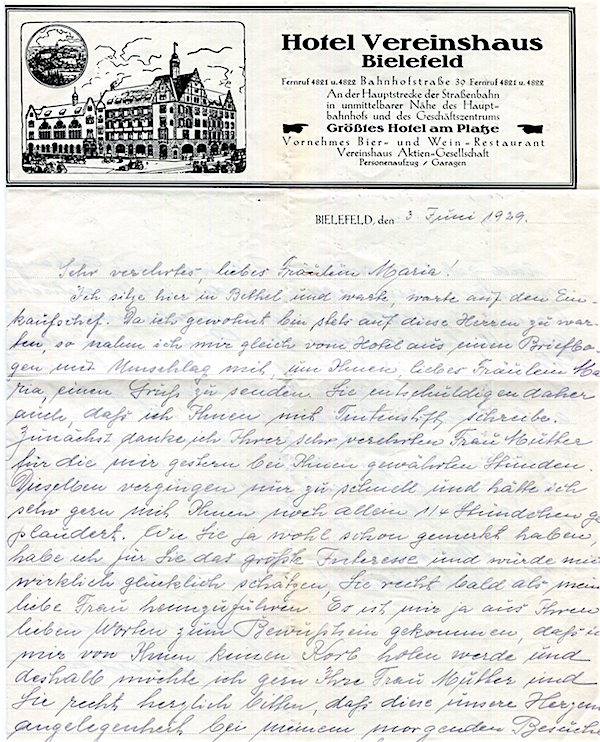 Hotel Vereinshaus
Bielefeld
Fernruf 4821 u. 4822 Bahnhofstraße 39 Fernruf 4821 u. 4822
An der Hauptstrecke der Straßenbahn
in unmittelbarer Nähe des Haupt-
bahnhofs und des Geschäftszentrums
Größtes Hotel am Platze
Vornehmes Bier- und Wein-Restaurant
Vereinshaus Aktien-Gesellschaft
Personenaufzug / Garagen
BIELEFELD, den 3 Juni 1929.
Sehr verehrtes, liebes Fräulein Maria!
Ich sitze hier in Bethel und warte, warte auf den Ein-
kaufschef. Da ich gewohnt bin stets auf diese Herren zu war-
ten, so nahm ich mir gleich vom Hotel aus einen Briefbo-
gen mit Umschlag mit, um Ihnen, liebes Fräulein Ma-
ria, einen Gruß zu senden. Sie entschuldigen daher
auch, daß ich Ihnen mit Tintenstift schreibe.
Zunächst danke ich Ihrer sehr verehrten Frau Mutter
für die mir gestern bei Ihnen gewährten Stunden.
Dieselben vergingen nur zu schnell und hätte ich
sehr gern mit Ihnen noch allein 1/4 Stündchen ge
plaudert. Wie Sie ja wohl schon gemerkt haben,
habe ich für Sie das größte Interesse und würde mich
wirklich glücklich schätzen, Sie recht bald als mein
liebe Frau heimzuführen. Es ist mir ja aus Ihren
lieben Worten zum Bewußtsein gekommen, daß ic
mir von Ihnen keinen Korb holen werde und
deshalb möchte ich gern Ihre Frau Mutter und
Sie recht herzlich bitten, daß diese unsere Herzens
angelegenheit bei meinem morgenden Besuche